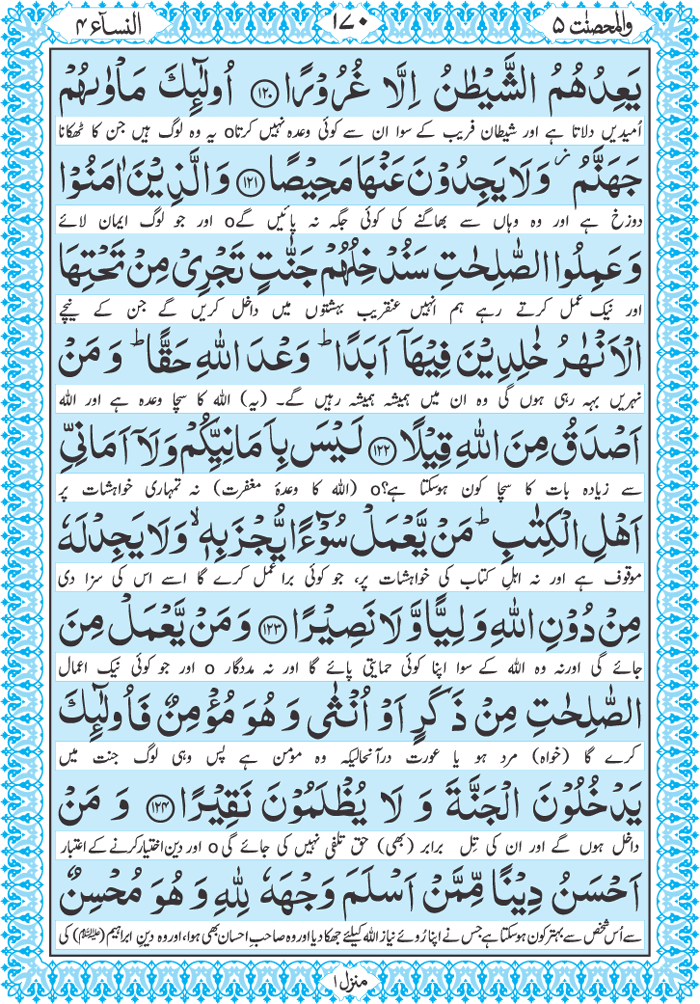 والمحصنت ۵
۱۷۰
النسآء ۴
يَعِدُهُمُ الشَّيْطٰنُ اِلَّا غُرُوْرًا ﴿۱۲۰﴾ اُولٰٓئِكَ مَاْوٰىهُمْ
اُمیدیں دلاتا ہے اور شیطان فریب کے سوا ان سے کوئی وعدہ نہیں کرتاo یہ وہ لوگ ہیں جن کا ٹھکانا
جَهَنَّمُ ؗ وَلَا يَجِدُوْنَ عَنْهَا مَحِيْصًا ﴿۱۲۱﴾ وَالَّذِيْنَ اٰمَنُوْا
دوزخ ہے اور وہ وہاں سے بھاگنے کی کوئی جگہ نہ پائیں گےo اور جو لوگ ایمان لائے
وَعَمِلُوا الصّٰلِحٰتِ سَنُدْخِلُهُمْ جَنّٰتٍ تَجْرِيْ مِنْ تَحْتِهَا
اور نیک عمل کرتے رہے ہم انہیں عنقریب بہشتوں میں داخل کریں گے جن کے نیچے
الْاَنْهٰرُ خٰلِدِيْنَ فِيْهَآ اَبَدًا ؕ وَعْدَ اللّٰهِ حَقًّا ؕ وَ مَنْ
نہریں بہہ رہی ہوں گی وہ ان میں ہمیشہ ہمیشہ رہیں گے۔ (یہ) اللہ کا سچا وعدہ ہے اور اللہ
اَصْدَقُ مِنَ اللّٰهِ قِيْلًا ﴿۱۲۲﴾ لَيْسَ بِاَمَانِيِّكُمْ وَلَآ اَمَانِيِّ
سے زیادہ بات کا سچا کون ہوسکتا ہے؟o (اللہ کا وعدۂ مغفرت) نہ تمہاری خواہشات پر
اَهْلِ الْكِتٰبِ ؕ مَنْ يَّعْمَلْ سُوْٓءًا يُّجْزَ بِهٖ ۙ وَلَا يَجِدْ لَهٗ
موقوف ہے اور نہ اہلِ کتاب کی خواہشات پر، جو کوئی برا عمل کرے گا اسے اس کی سزا دی
مِنْ دُوْنِ اللّٰهِ وَلِيًّا وَّلَا نَصِيْرًا ﴿۱۲۳﴾ وَمَنْ يَّعْمَلْ مِنَ
جائے گی اورنہ وہ اللہ کے سوا اپنا کوئی حمایتی پائے گا اور نہ مددگار o اور جو کوئی نیک اعمال
الصّٰلِحٰتِ مِنْ ذَكَرٍ اَوْ اُنْثٰى وَ هُوَ مُؤْمِنٌ فَاُولٰٓئِكَ
کرے گا (خواہ) مرد ہو یا عورت درآنحالیکہ وہ مومن ہے پس وہی لوگ جنت میں
يَدْخُلُوْنَ الْجَنَّةَ وَ لَا يُظْلَمُوْنَ نَقِيْرًا ﴿۱۲۴﴾ وَ مَنْ
داخل ہوں گے اور ان کی تِل برابر (بھی) حق تلفی نہیں کی جائے گیo اور دین اختیار کرنے کے اعتبار
اَحْسَنُ دِيْنًا مِّمَّنْ اَسْلَمَ وَجْهَهٗ لِلّٰهِ وَ هُوَ مُحْسِنٌ
سے اُس شخص سے بہتر کون ہوسکتا ہے جس نے اپنا رُوئے نیاز اللہ کیلئے جھکا دیا اور وہ صاحبِ احسان بھی ہوا، اور وہ دینِ ابراہیم (علیہ السلام) کی
منزل ۱